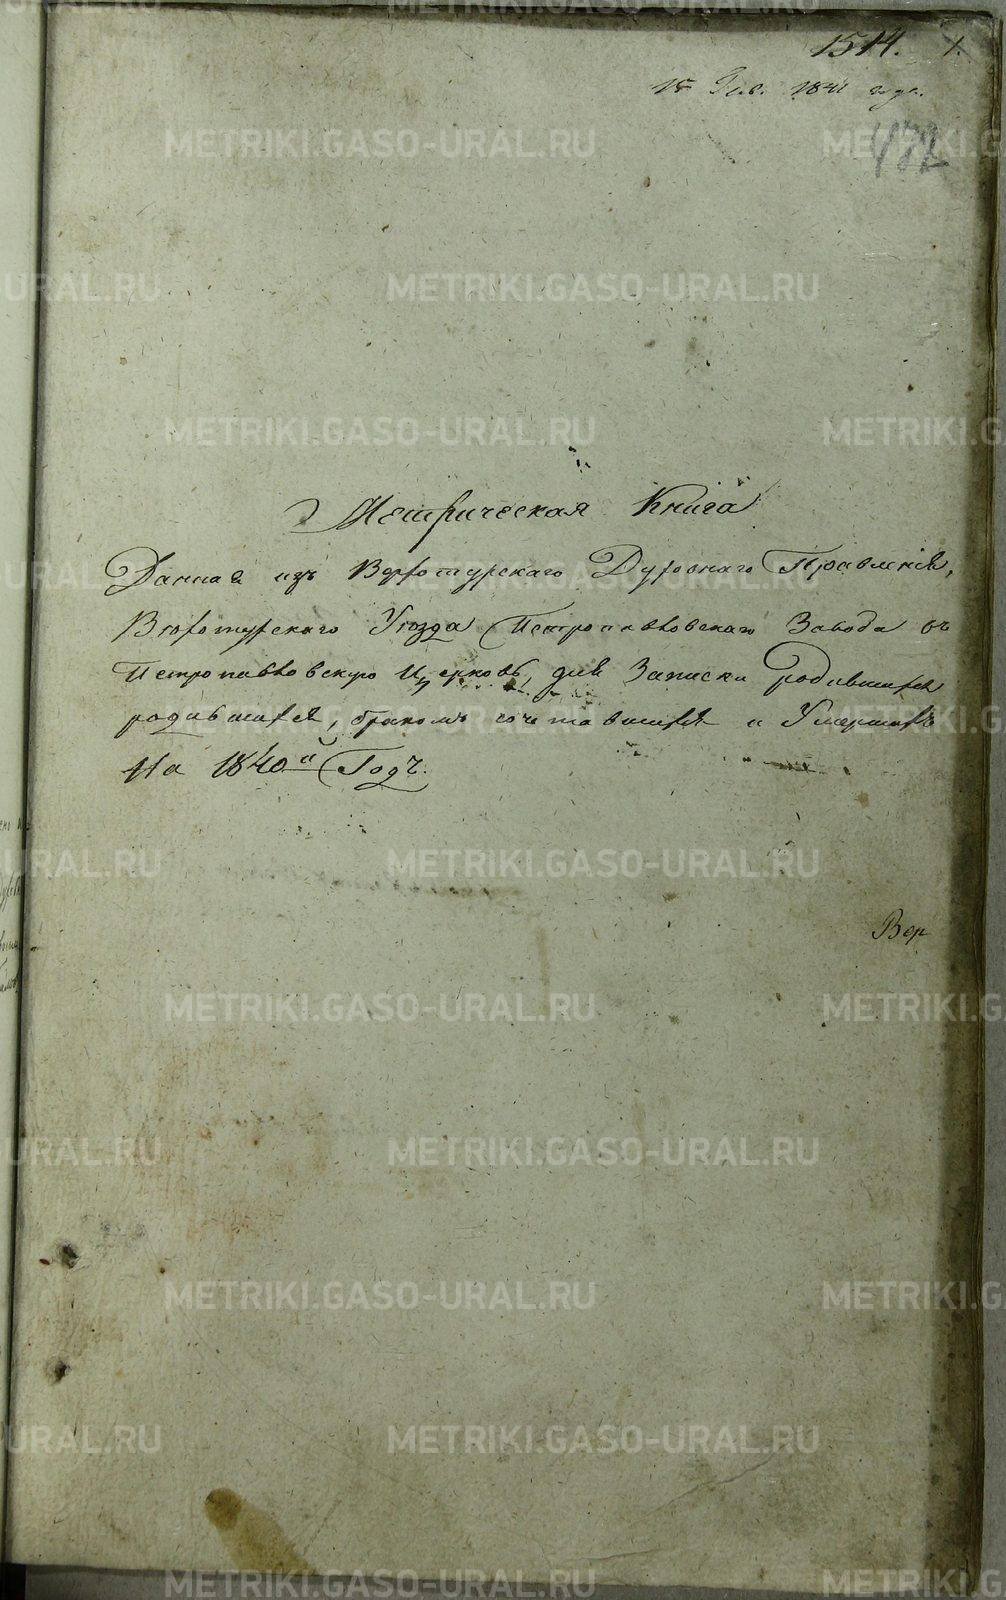 1514. 1.
15 Ген. 1841 года.
482
Метрическая Книга
Данная изъ Верхотурскаго Духовнаго Правленія,
Верхотурскаго Уѣзда Петропавловскаго Завода въ
Петропавловскую Церковь, для Записки родившихся
родившихся, бракомъ сочетавшихся и Умершихъ
На 1840й Годъ.
Вер
METRIKI.GASO-URAL.RU